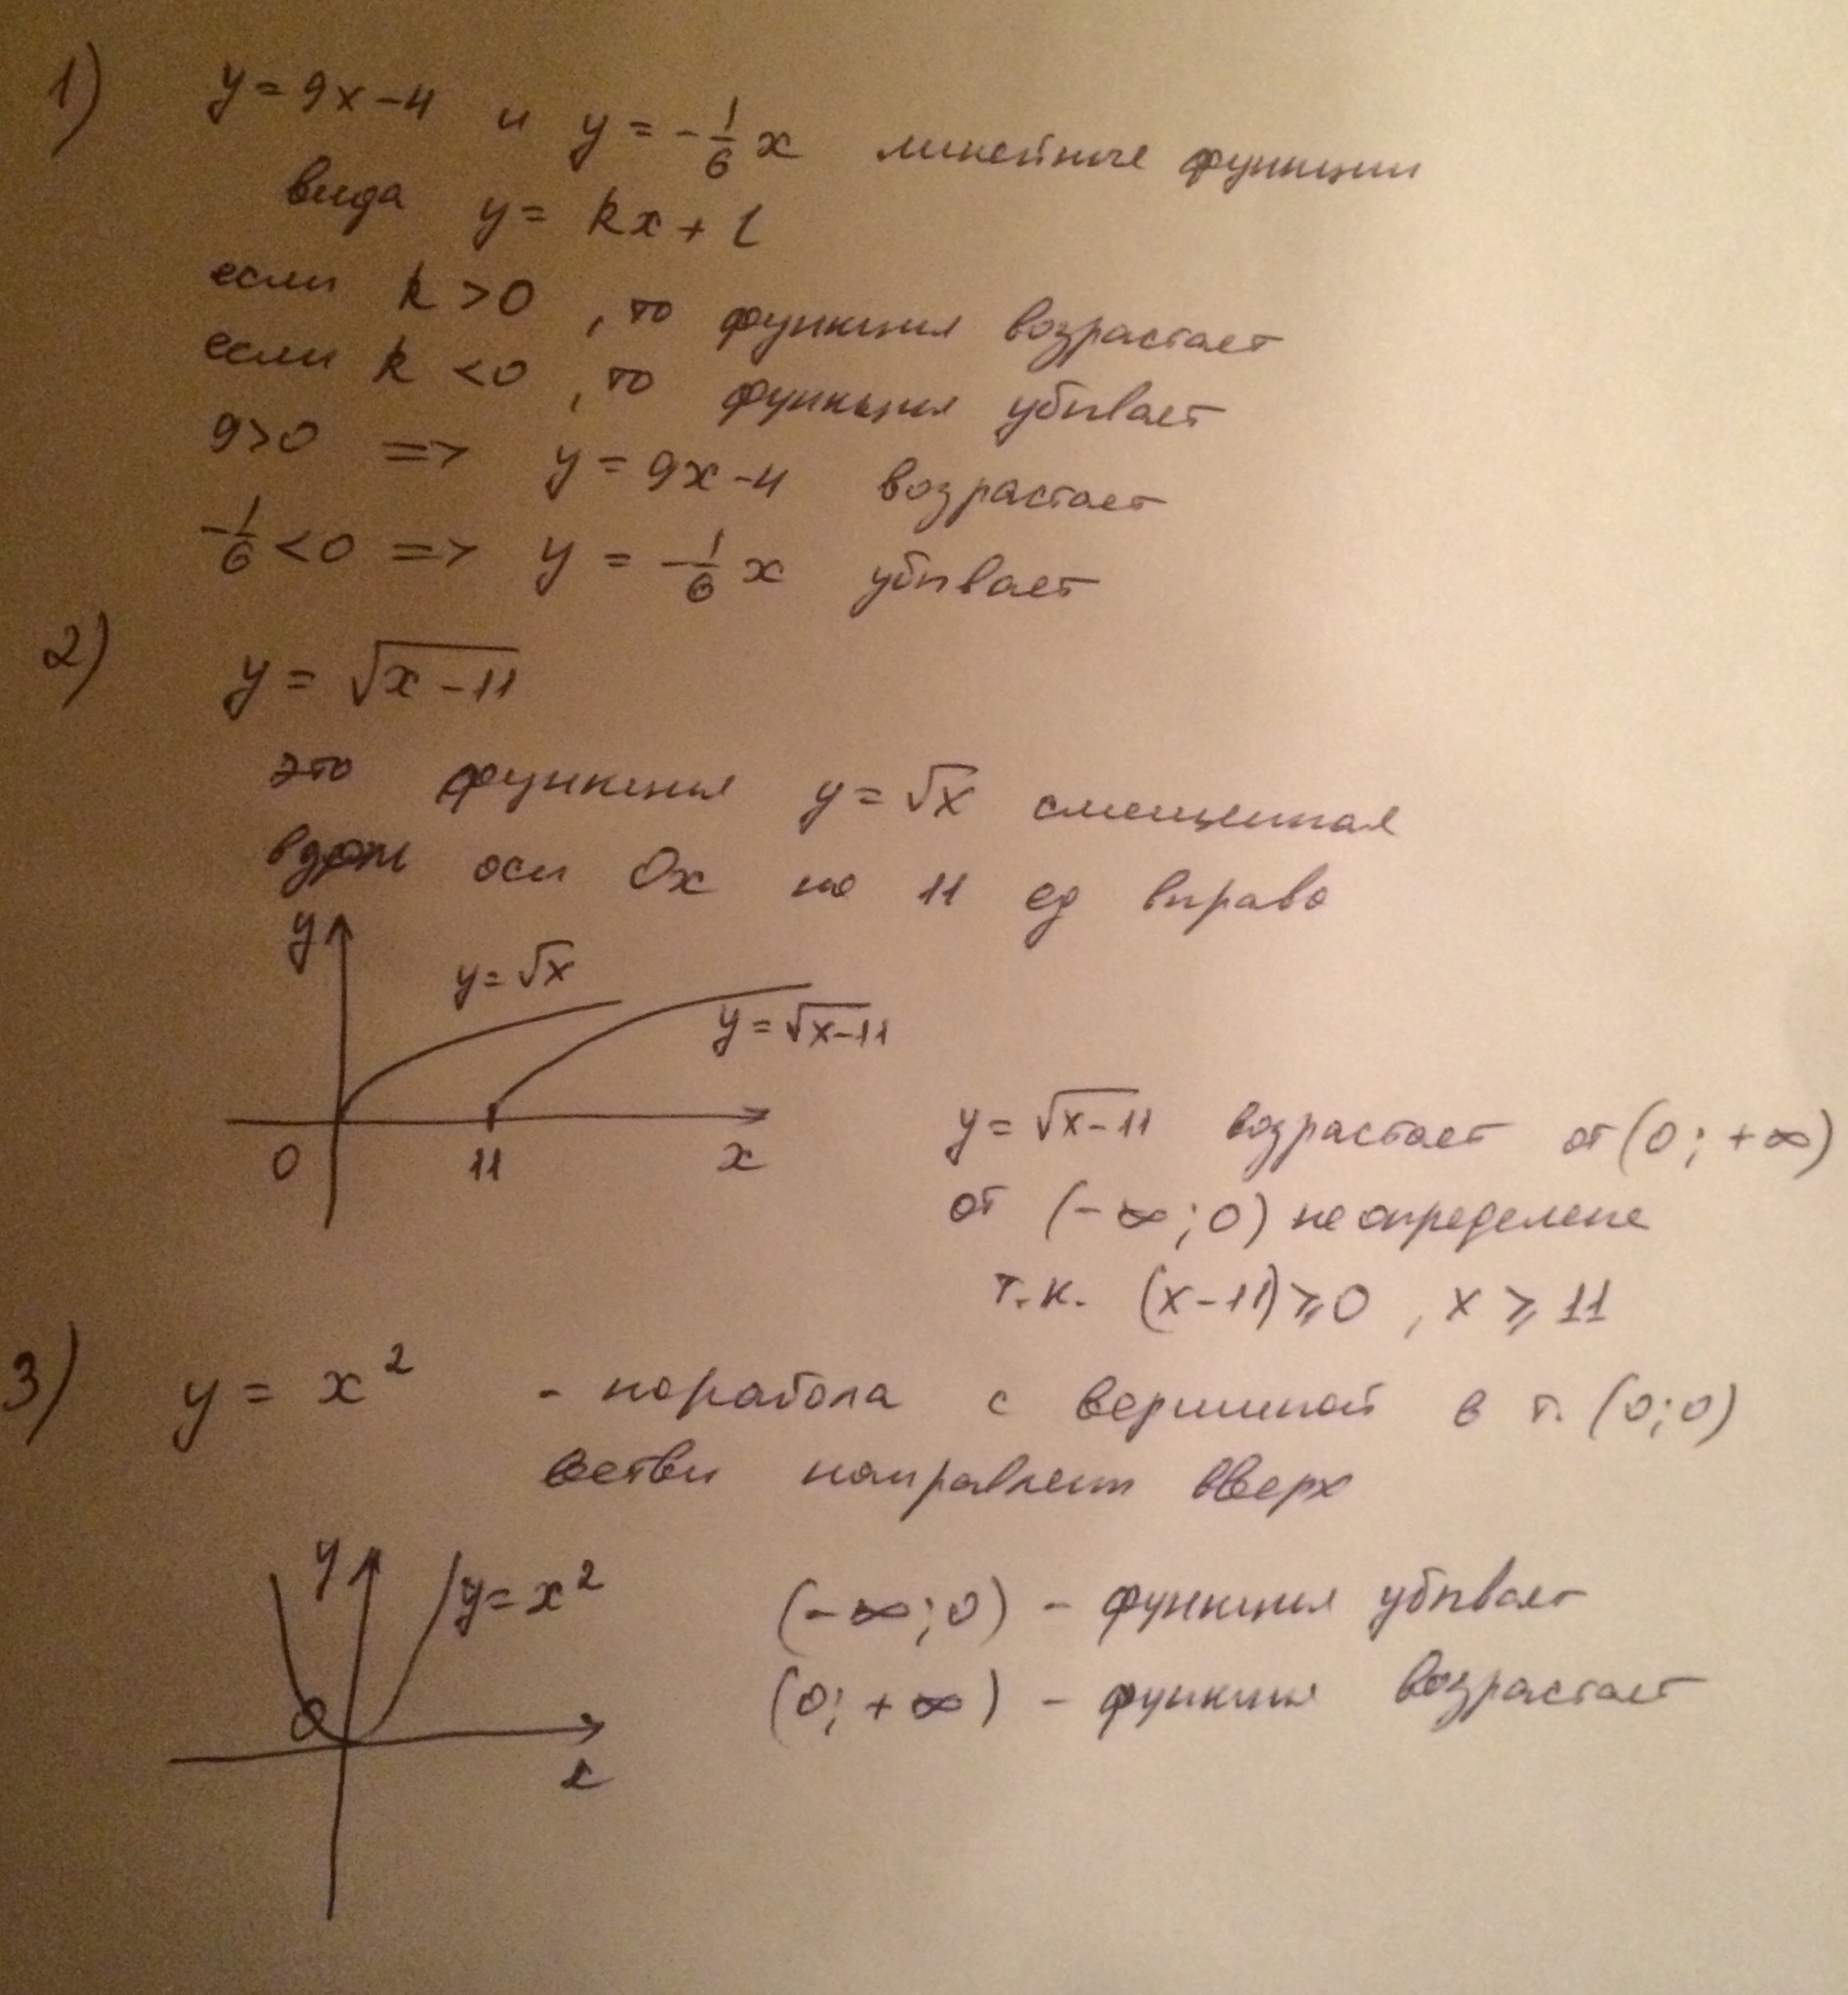 1) y = 9x - 4 и y = -1/6 x линейные функции
вида y = kx + l
если k > 0, то функция возрастает
если k < 0, то функция убывает
9 > 0 => y = 9x - 4 возрастает
-1/6 < 0 => y = -1/6 x убывает
2) y = √(x - 11)
это функция y = √x смещенная
вдоль оси Ox на 11 ед вправо
y
y = √x
y = √(x-11)
0 11 x
y = √(x-11) возрастает от (0; +∞)
от (-∞; 0) не определена
т.к. (x-11) ⩾ 0, x ⩾ 11
3) y = x² - порабола с вершиной в т. (0;0)
ветви направлены вверх
y
y = x²
0
x
(-∞; 0) - функция убывает
(0; +∞) - функция возрастает